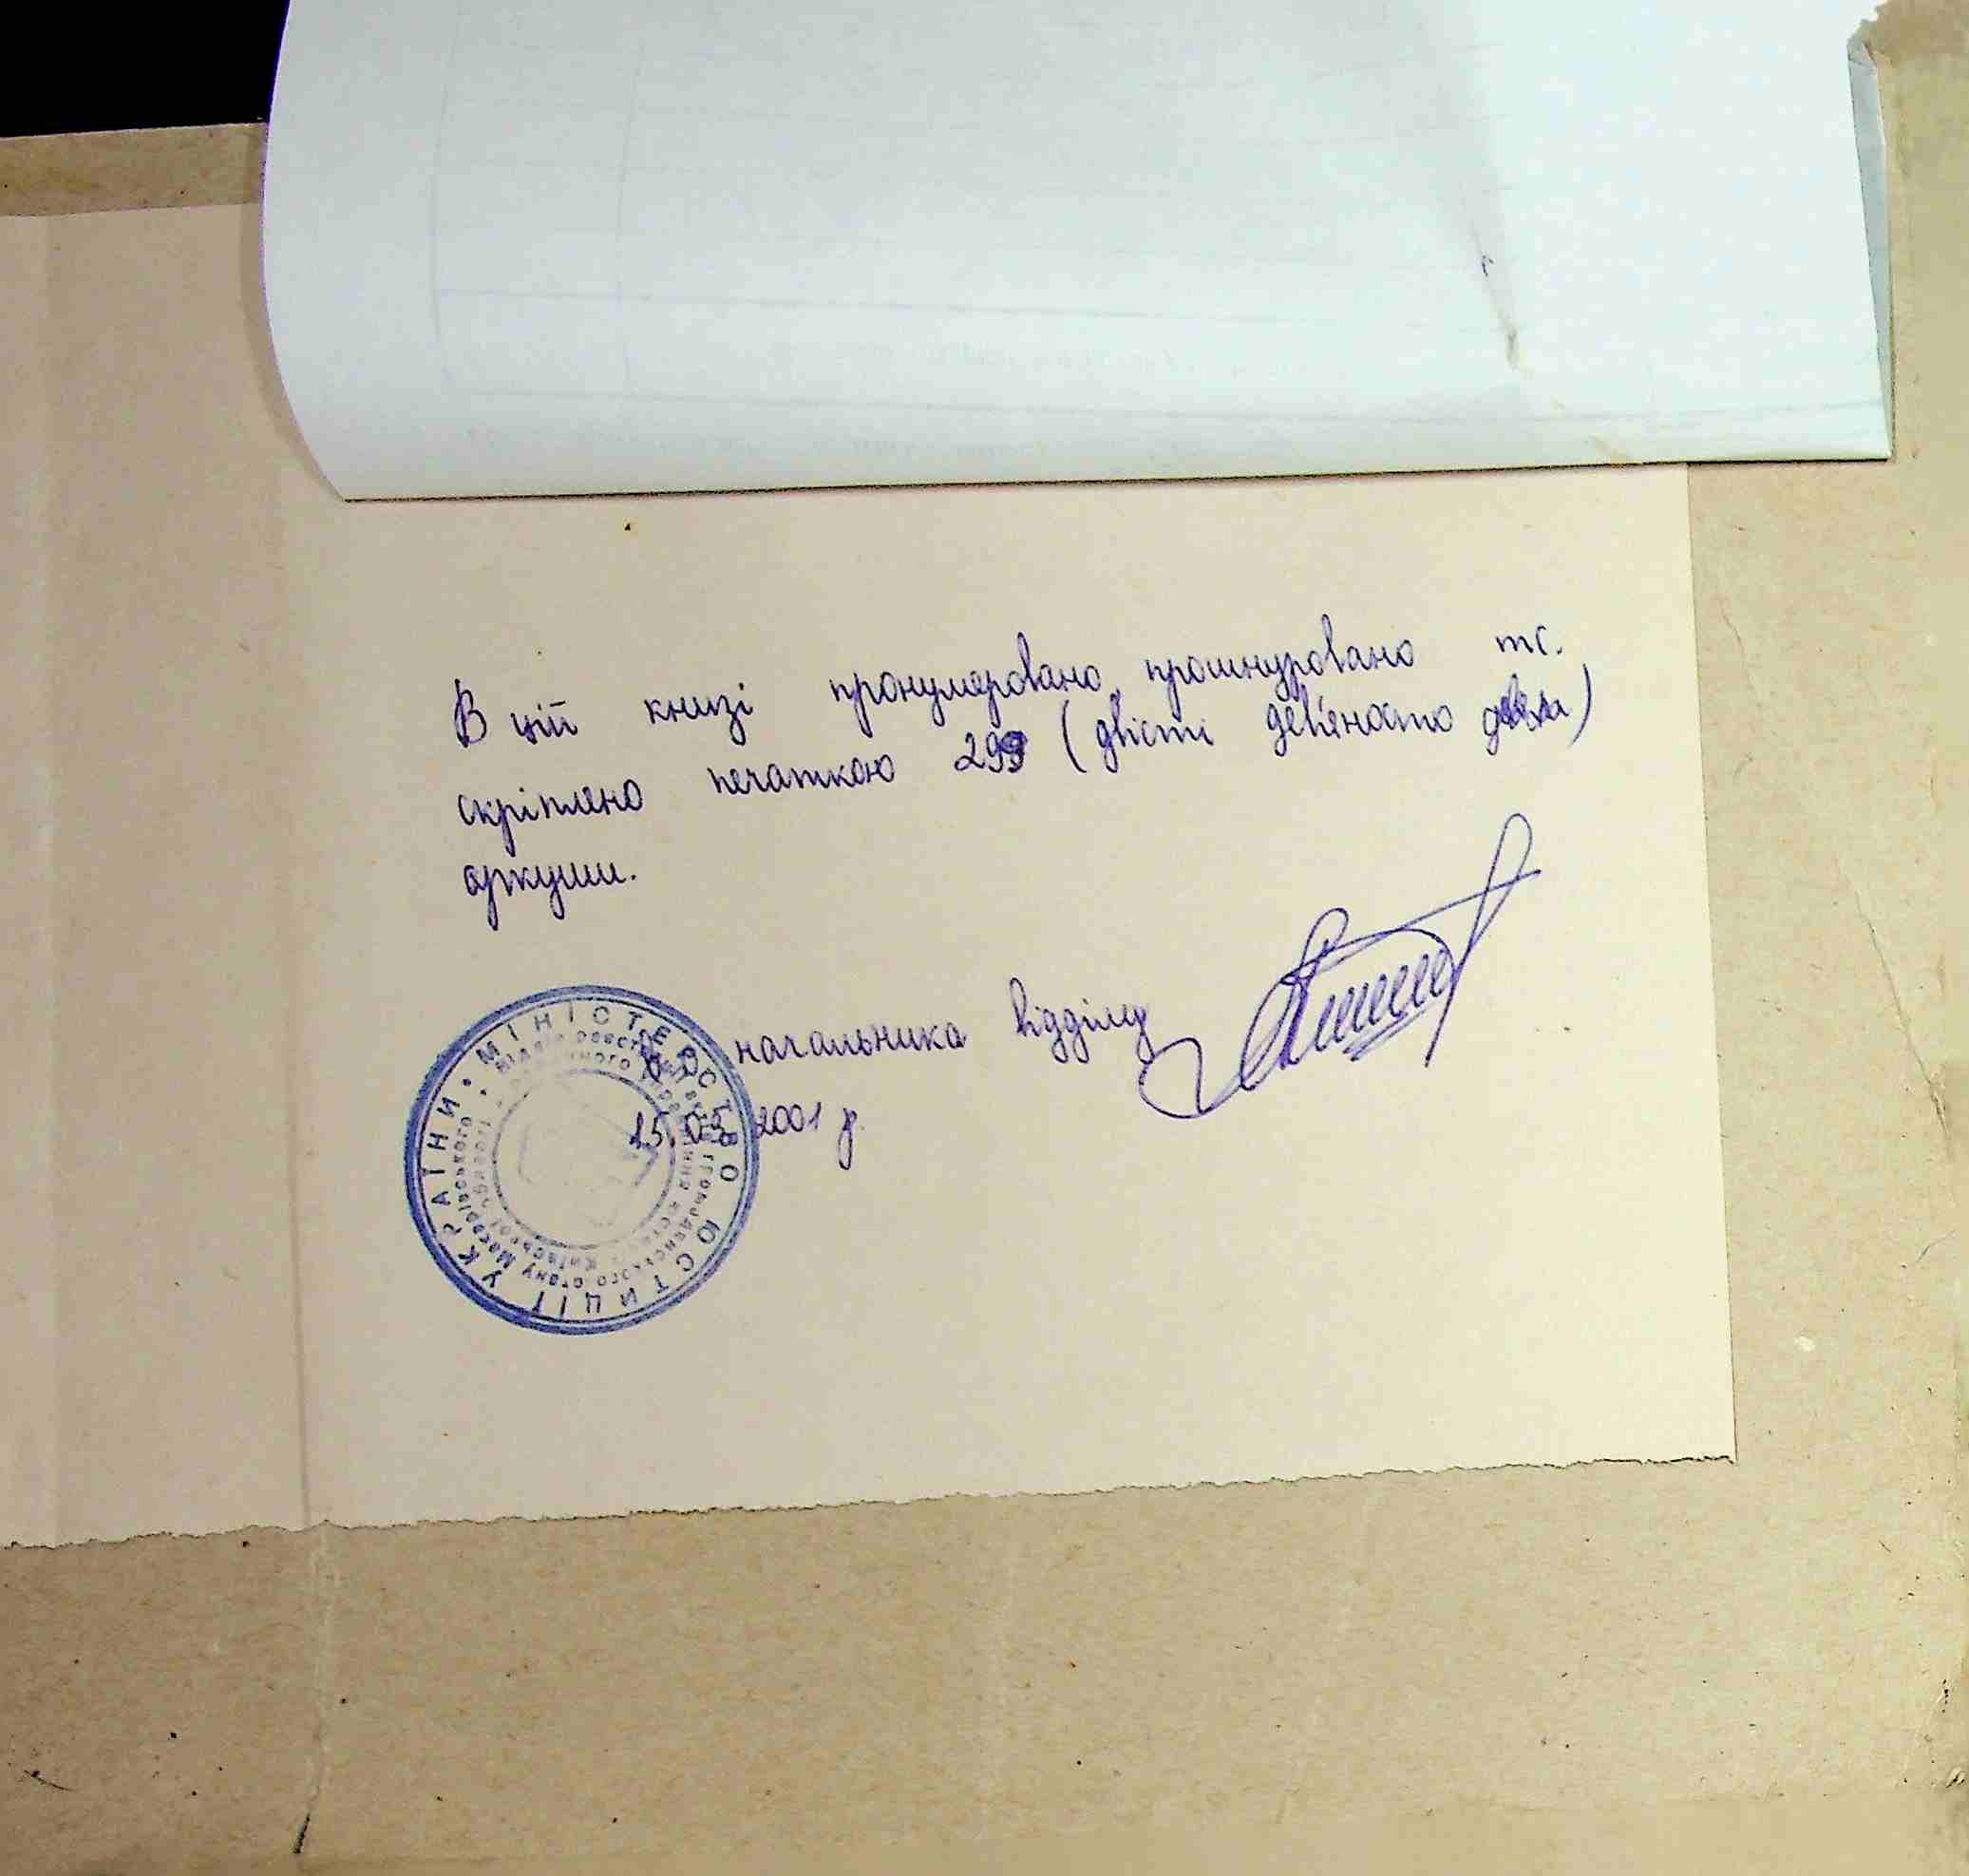 В цій книзі пронумеровано, прошнуровано та
скріплено печаткою 299 (двісті дев'яносто
аркуши.
начальника відділу
15.05.2001 р.
МІНІСТЕРСТВО ЮСТИЦІЇ УКРАЇНИ
Відділ реєстрації актів громадянського стану Макарівського
районного управління юстиції Київської області